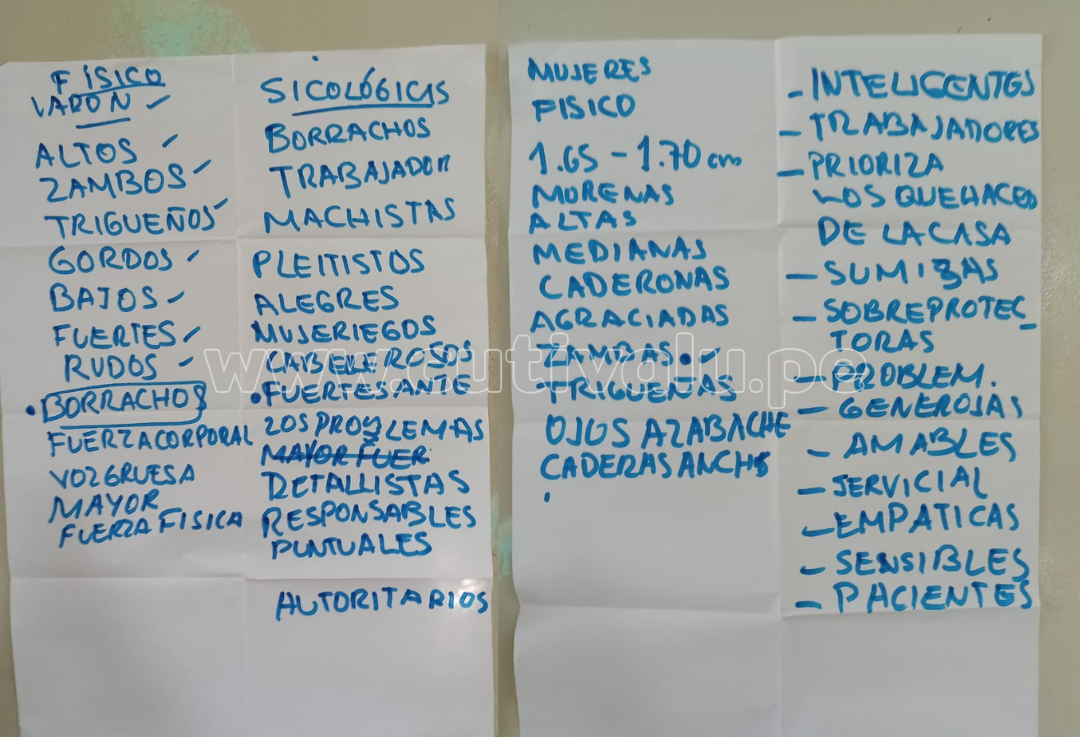 FÍSICO
VARON
ALTOS
ZAMBOS
TRIGUEÑOS
GORDOS
BAJOS
FUERTES
RUDOS
BORRACHOS
FUERZA CORPORAL
VOZ GRUESA
MAYOR
FUERZA FISICA
SICOLÓGICIS
BORRACHOS
TRABAJADOR
MACHISTAS
PLEITISTOS
ALEGRES
MUJERIEGOS
CABELLEROSOS
FUERTES ANTE
LOS PROBLEMAS
MAYOR FUER
DETALLISTAS
RESPONSABLES
PUNTUALES
AUTORITARIOS
MUJERES
FISICO
1.65 - 1.70 cm
MORENAS
ALTAS
MEDIANAS
CADERONAS
AGRACIADAS
ZAMBAS
TRIGUEÑAS
OJOS AZABACHE
CADERAS ANCHS
- INTELIGENTES
- TRABAJADORES
- PRIORIZA
LOS QUEHACES
DE LA CASA
- SUMISAS
- SOBREPROTEC_
TORAS
- PROBLEM.
- GENEROSAS
- AMABLES
- SERVICIAL
- EMPATICAS
- SENSIBLES
- PACIENTES
www.cutivalu.pe